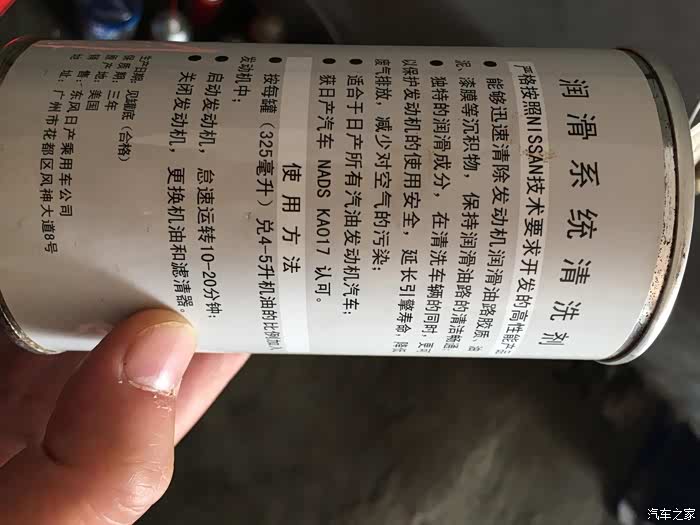 润滑系统清洗剂
严格按照NISSAN技术要求开发的高性能产品
● 能够迅速清除发动机润滑油路胶质、油
泥、漆膜等沉积物，保持润滑油路的清洁畅通
● 独特的润滑成分，在清洗车辆的同时，更可
以保护发动机的使用安全，延长引擎寿命，降低
废气排放，减少对空气的污染；
● 适合于日产所有汽油发动机汽车；
● 获日产汽车 NADS KA017 认可。
使用方法
● 按每罐（325毫升）兑4-5升机油的比例加入
发动机中；
● 启动发动机，怠速运转10-20分钟；
● 关闭发动机，更换机油和滤清器。
生产日期：见罐底（合格）
保质期：三年
原产地：美国
销售：东风日产乘用车公司
地址：广州市花都区风神大道8号
汽车之家